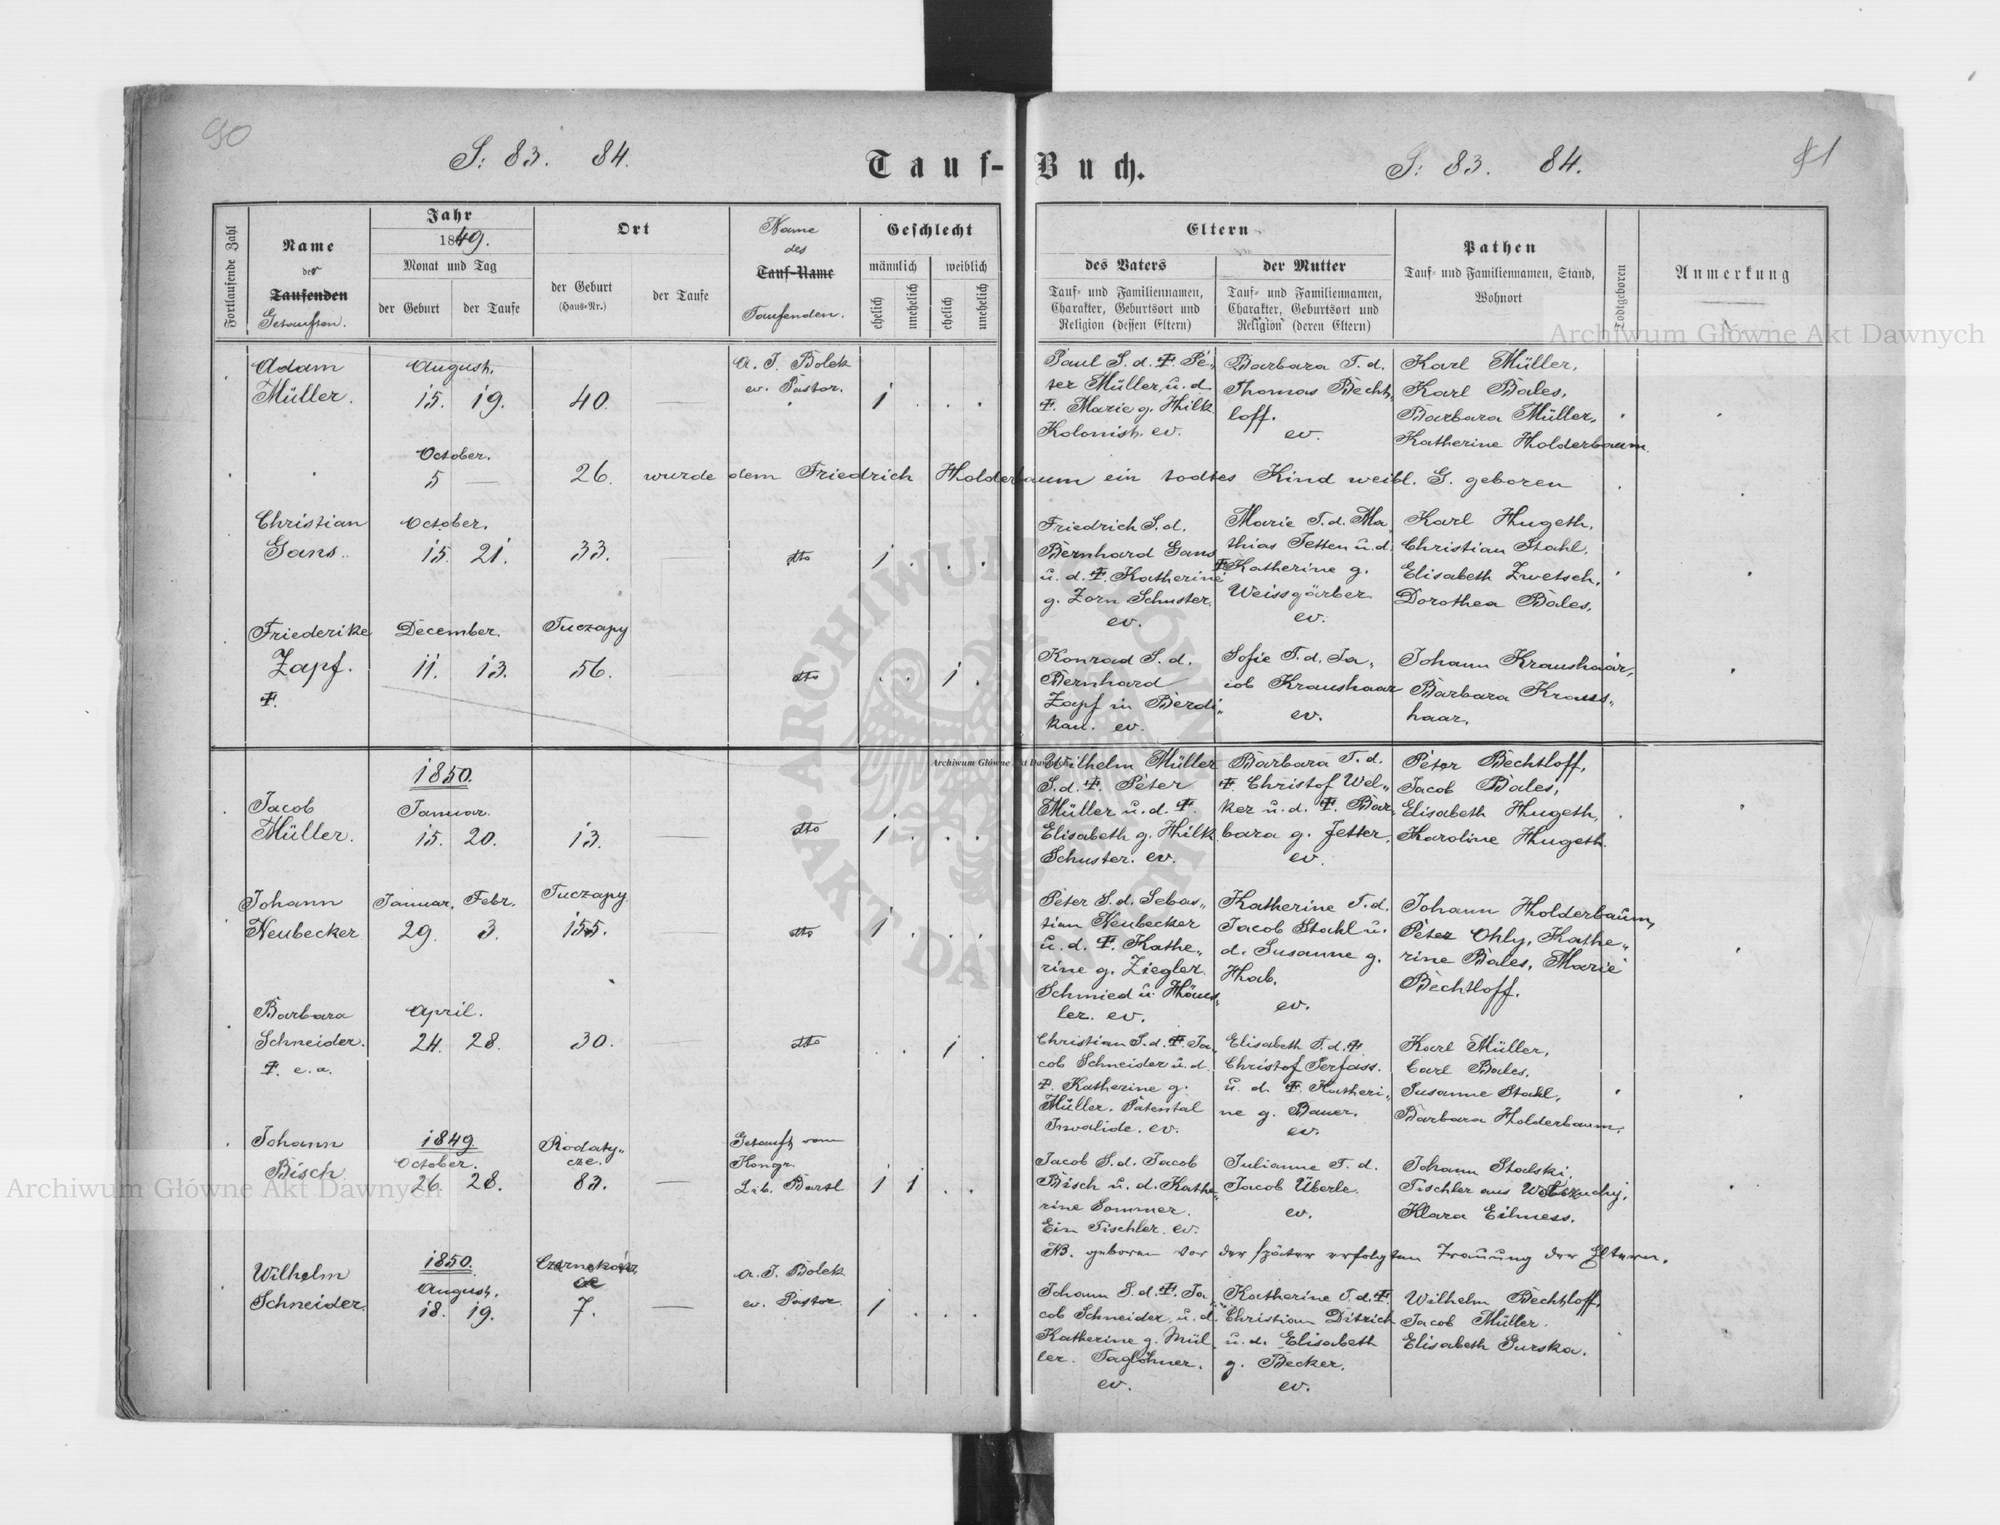 90
S: 83. 84.
Tauf-Buch.
S: 83. 84.
Fortlaufende Zahl
Name
des
Taufenden
Getauften.
Jahr
1849.
Monat und Tag
der Geburt
der Taufe
Ort
der Geburt
(Haus-Nr.)
der Taufe
Name
des
Tauf-Name
Taufenden.
Geschlecht
männlich
weiblich
ehelich
unehelich
ehelich
unehelich
Eltern
des Vaters
Tauf- und Familiennamen,
Charakter, Geburtsort und
Religion (dessen Eltern)
der Mutter
Tauf- und Familiennamen,
Charakter, Geburtsort und
Religion (deren Eltern)
Pathen
Tauf- und Familiennamen, Stand,
Wohnort
Todtgeboren
Anmerkung
Adam
Müller.
August.
15. 19.
40.
A. J. Bolek
ev. Pastor.
1
Paul S. d. Ŧ Pe-
ter Müller, u. d.
Ŧ. Marie g. Hilk
Kolonist. ev.
Barbara T. d.
Thomas Becht-
loff.
ev.
Karl Müller,
Karl Bales,
Barbara Müller,
Katherine Holderbaum.
October.
5 — 26. wurde dem Friedrich Holderbaum ein todtes Kind weibl. G. geboren
Christian
Gans.
October.
15. 21.
33.
dto
1
Friedrich S. d.
Bernhard Gans
u. d. Ŧ. Katherine
g. Zorn Schuster.
ev.
Marie T. d. Ma-
thias Jetten u. d.
Ŧ Katherine g.
Weissgärber.
ev.
Karl Hugeth,
Christian Stahl,
Elisabeth Zwetsch,
Dorothea Bales.
Friederike
Zapf.
Ŧ.
December.
11. 13.
Tuczapy
56.
dto
1
Konrad S. d.
Bernhard
Zapf in Berdi-
kau. ev.
Sofie T. d. Ja-
cob Kraushaar
ev.
Johann Kraushaar,
Barbara Kraus-
haar.
1850.
Jacob
Müller.
Januar.
15. 20.
13.
dto
1
Wilhelm Müller
S. d. Ŧ. Peter
Müller u. d. Ŧ
Elisabeth g. Hilk
Schuster. ev.
Barbara T. d.
Ŧ. Christof Wel-
ker u. d. Ŧ. Bar-
bara g. Jetter.
ev.
Peter Bechtloff,
Jacob Bales,
Elisabeth Hugeth,
Karoline Hugeth.
Johann
Neubecker
Januar. Febr.
29. 3.
Tuczapy
155.
dto
1
Peter S. d. Sebas-
tian Neubecker
u. d. Ŧ. Kathe-
rine g. Ziegler.
Schmied u. Häus-
ler. ev.
Katherine T. d.
Jacob Stahl u.
d. Susanne g.
Hab.
ev.
Johann Holderbaum,
Peter Ohly, Kathe-
rine Bales, Marie
Bechtloff.
Barbara
Schneider.
Ŧ. e. a.
April.
24. 28.
30.
dto
1
Christian S. d. Ŧ. Ja-
cob Schneider u. d.
Ŧ. Katherine g.
Müller. Patental
Invalide. ev.
Elisabeth T. d. Ŧ
Christof Serfass.
u. d. Ŧ Katheri-
ne g. Bauer.
ev.
Karl Müller,
Carl Bales,
Susanne Stahl,
Barbara Holderbaum.
Johann
Bisch
1849.
October.
26. 28.
Rodaty-
cze.
83.
Getauft vom
Kongr.
Lib. Bartl
1 1
Jacob S. d. Jacob
Bisch u. d. Kathe-
rine Sommer.
Ein Tischler. ev.
Julianne T. d.
Jacob Überle.
ev.
Johann Stadski,
Tischler aus
Klara Eilmess.
NB. geboren vor der später erfolgten Trauung der Eltern.
Wilhelm
Schneider.
1850.
August.
18. 19.
7.
A. J. Bolek
ev. Pastor.
1
Johann S. d. Ŧ. Ja-
cob Schneider, u. d.
Katherine g. Mül-
ler. Taglöhner.
ev.
Katherine T. d. Ŧ
Christian Ditrich
u. d. Elisabeth
g. Becker.
ev.
Wilhelm Bechtloff,
Jacob Müller.
Elisabeth Gurska.
Archiwum Główne Akt Dawnych
Archiwum Główne Akt Dawnych
Archiwum Główne Akt Dawnych
ARCHIWUM GŁÓWNE AKT DAWNYCH